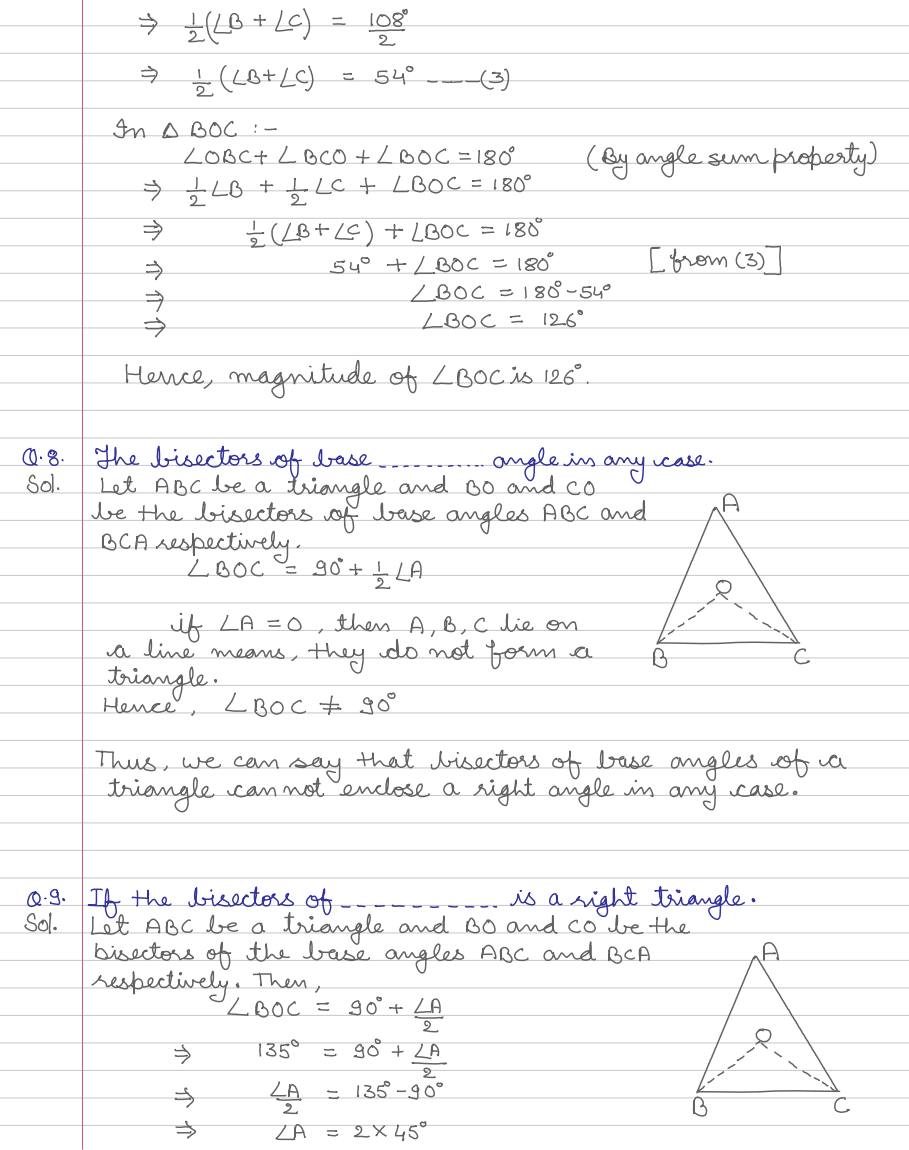 ⇒ 1/2(∠B + ∠C) = 108°/2
⇒ 1/2(∠B+∠C) = 54° ——(3)
In △ BOC :-
∠OBC+ ∠BCO + ∠BOC = 180° (By angle sum property)
⇒ 1/2∠B + 1/2∠C + ∠BOC = 180°
⇒ 1/2(∠B+∠C) + ∠BOC = 180°
⇒ 54° + ∠BOC = 180° [from (3)]
⇒ ∠BOC = 180°-54°
⇒ ∠BOC = 126°
Hence, magnitude of ∠BOC is 126°.
Q.8. The bisectors of base ........... angle in any case.
Sol. Let ABC be a triangle and BO and CO
be the bisectors of base angles ABC and
BCA respectively.
∠BOC = 90° + 1/2∠A
if ∠A = 0, then A, B, C lie on
a line means, they do not form a
triangle.
Hence, ∠BOC ≠ 90°
A
O
B C
Thus, we can say that bisectors of base angles of a
triangle cannot enclose a right angle in any case.
Q.9. If the bisectors of ---------- is a right triangle.
Sol. Let ABC be a triangle and BO and CO be the
bisectors of the base angles ABC and BCA
respectively. Then,
∠BOC = 90° + ∠A/2
⇒ 135° = 90° + ∠A/2
⇒ ∠A/2 = 135° - 90°
⇒ ∠A = 2 × 45°
A
O
B C